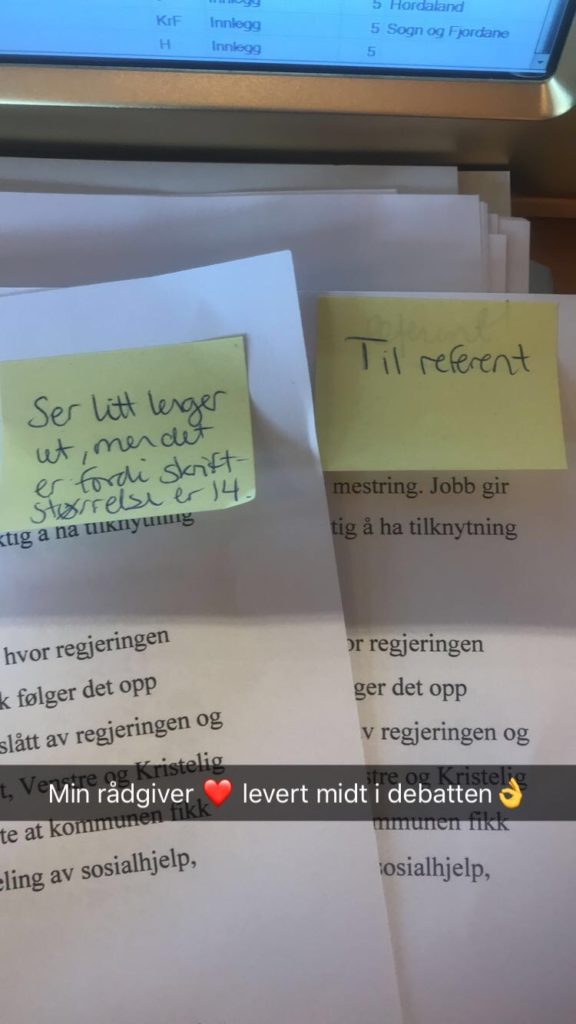 Innlegg 5 Hordaland
KrF Innlegg 5 Sogn og Fjordane
H Innlegg 5
Ser litt lenger
ut, men det
er fordi skrift-
størrelse er 14.
Til referent
ktig å ha tilknytning
hvor regjeringen
k følger det opp
slått av regjeringen og
t, Venstre og Kristelig
te at kommunen fikk
eling av sosialhjelp,
mestring. Jobb gir
tig å ha tilknytning
or regjeringen
ger det opp
v regjeringen og
stre og Kristelig
mmunen fikk
sosialhjelp,
Min rådgiver ❤️ levert midt i debatten👌